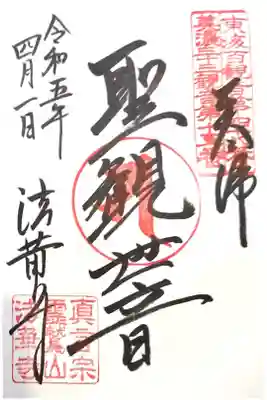 奉拝
聖観世音
令和五年
四月一日
法華寺
美濃三十三観音第
真言宗
霊鷲山
法華寺